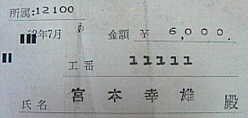 所属:12100
年7月 金額 ¥ 6,000.
工番 11111
氏名 宮本幸雄 殿